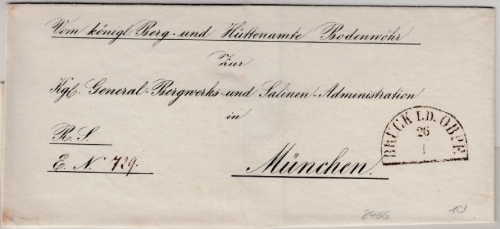 Vom königl Berg- und Hüttenamte Bodenwöhr
Zur
Kgl. General-Bergwerks- und Salinen-Administration
in
R. S.
E. N. 729.
München.
BRUCK I.D. OBPF.
26
1
8466